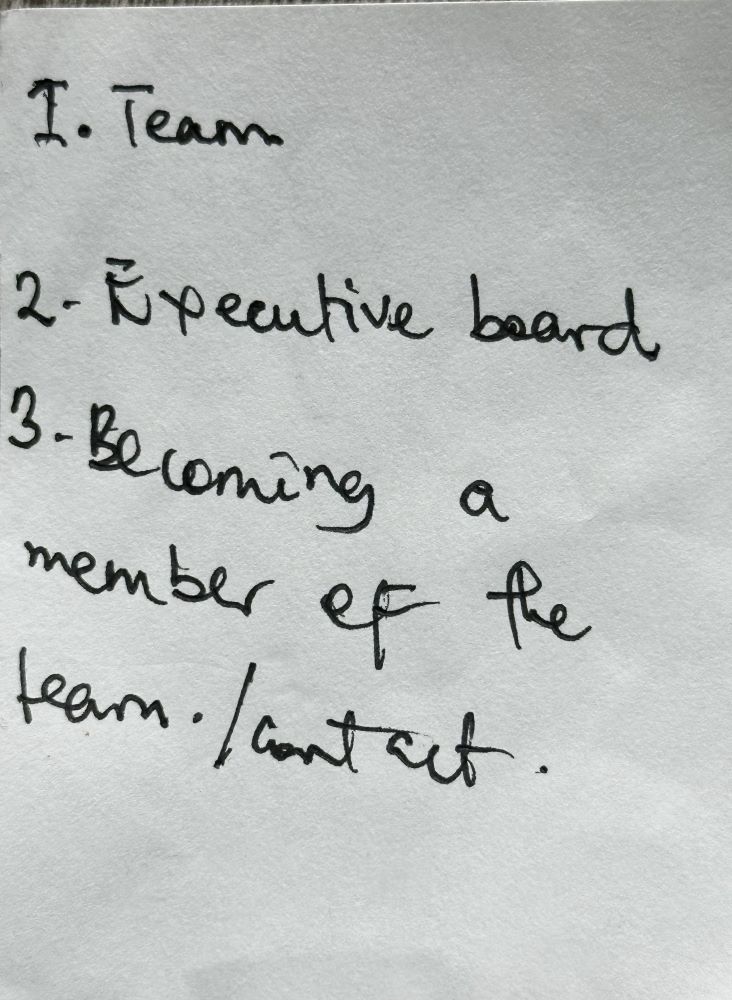 1. Team
2- Executive board
3-Becoming a
member of the
team./contact.